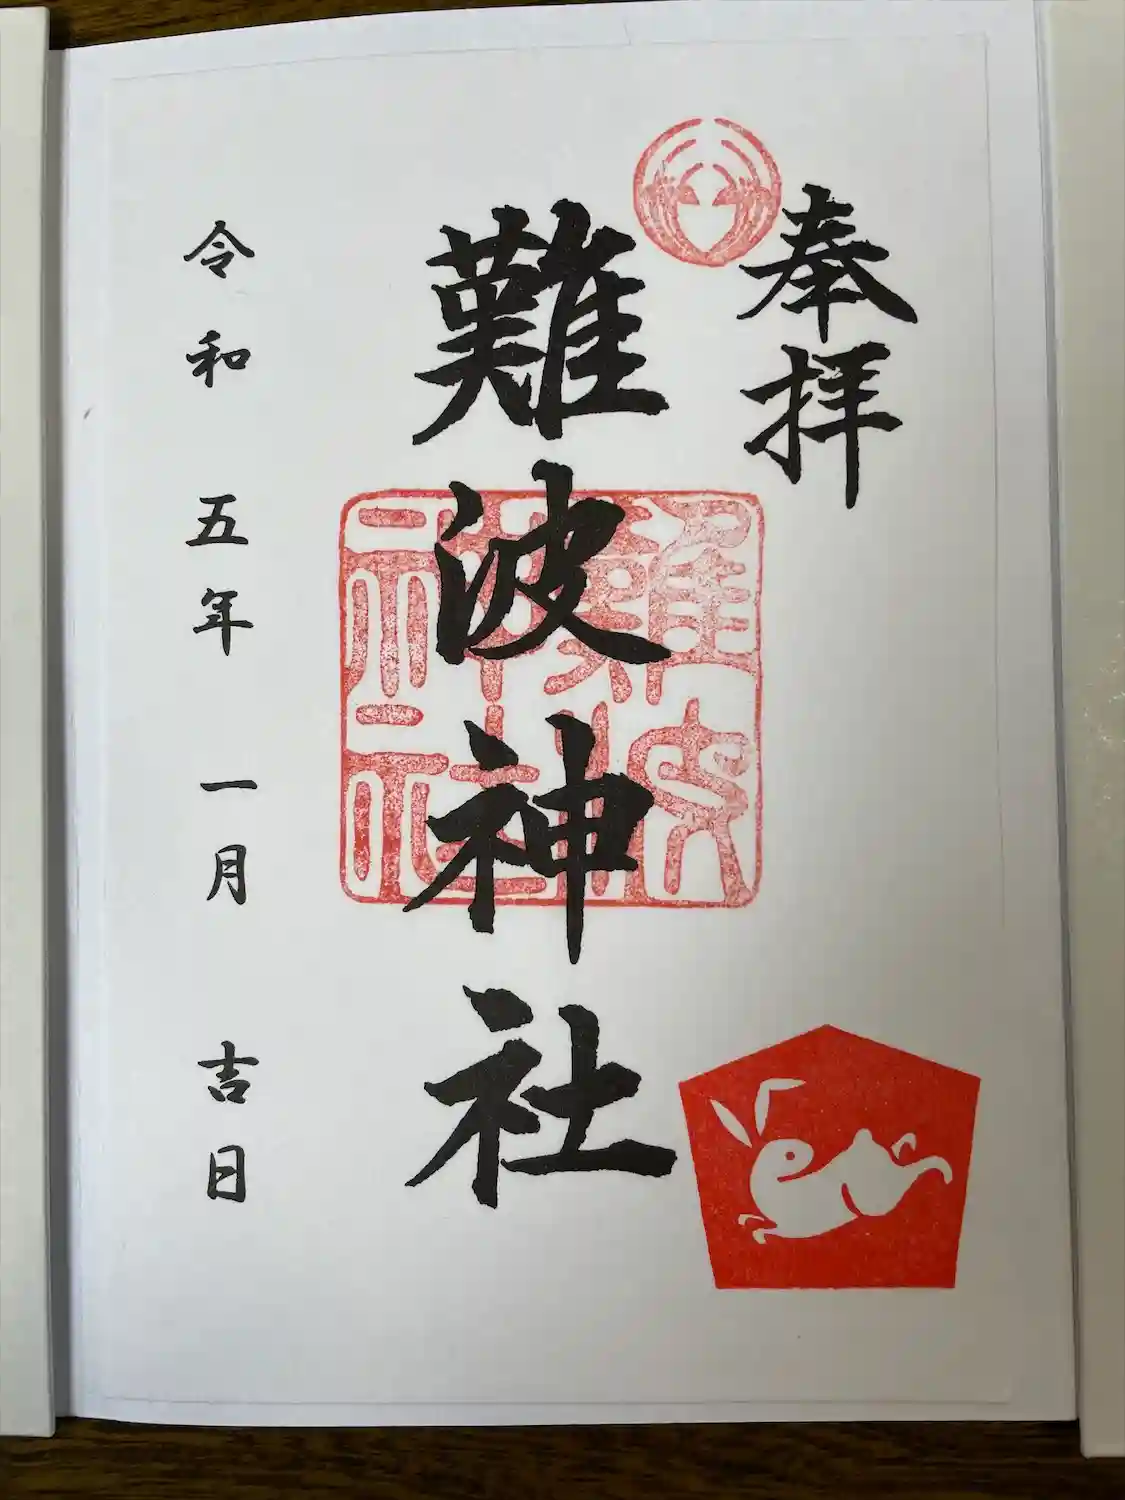 奉拝
難波神社
難波神社
令和 五年 一月 吉日